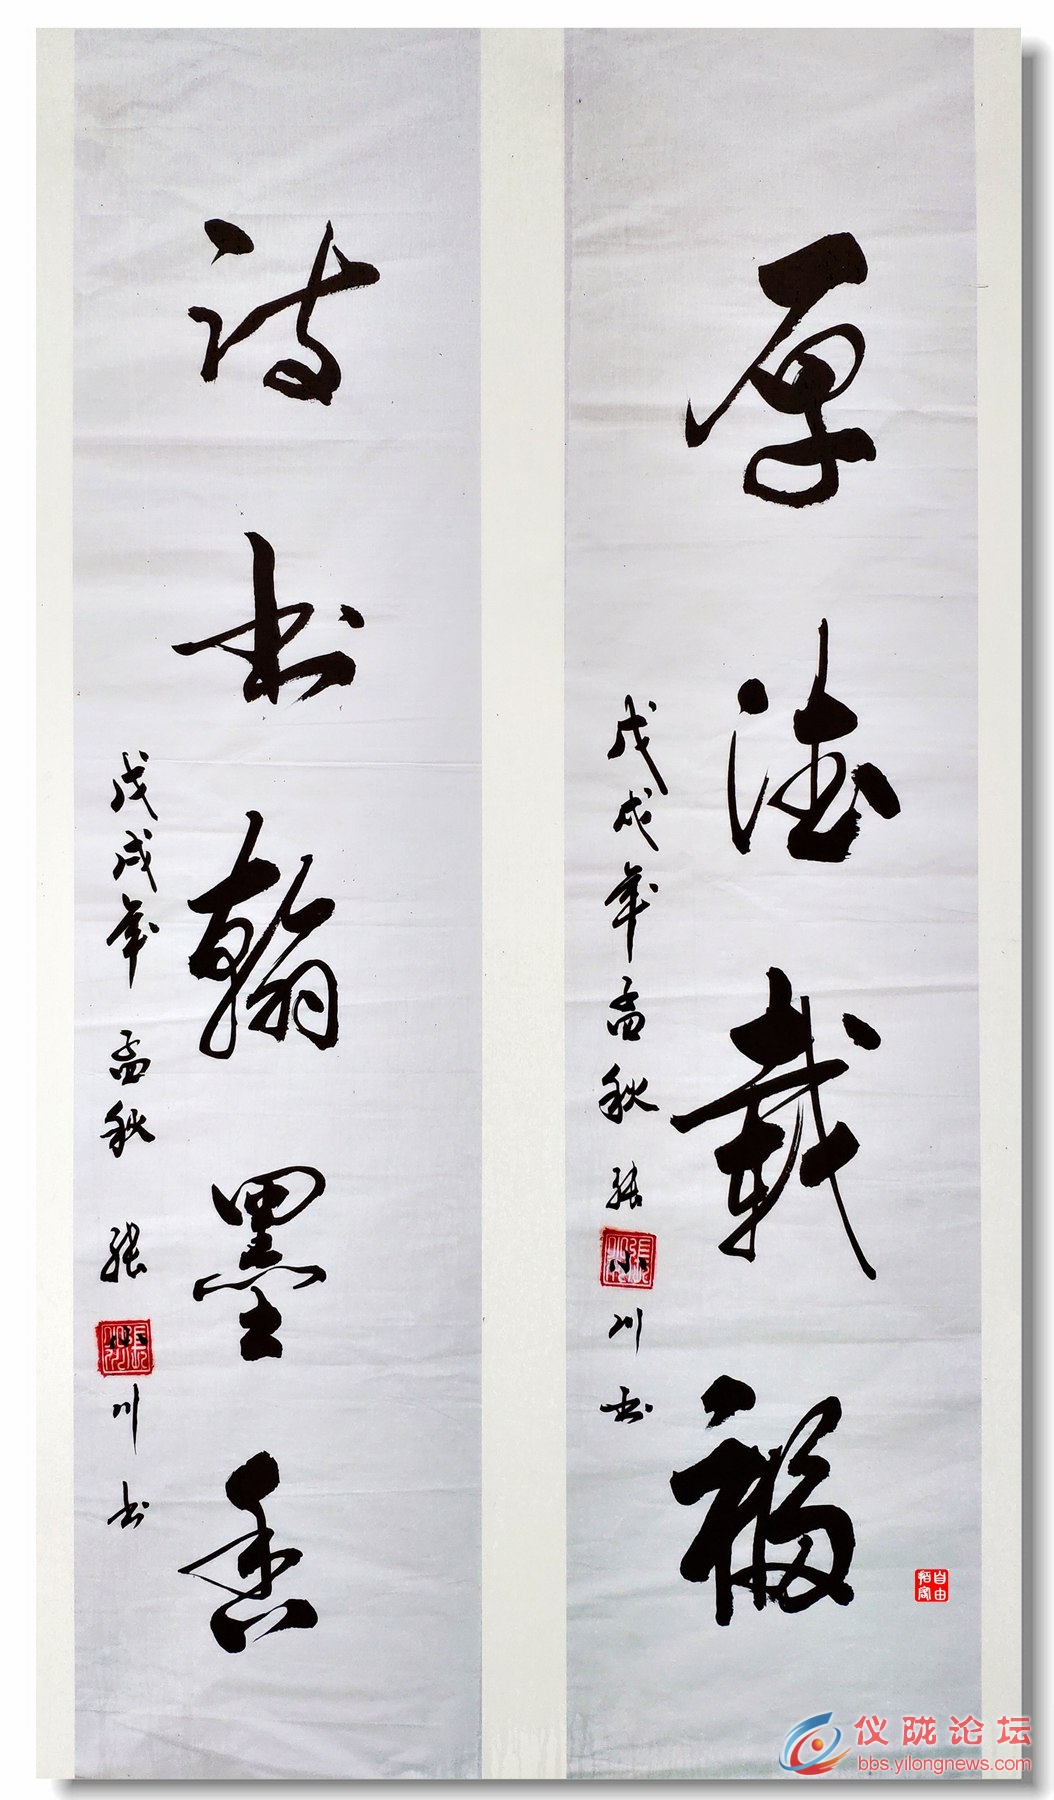 厚德载福
戊戌年孟秋 张小川书
诗书翰墨香
戊戌年 孟秋 张小川书
自由
拓客
仪陇论坛
bbs.yilongnews.com